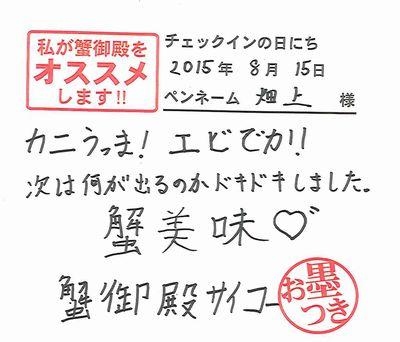 私が蟹御殿を
オススメ
します!!
チェックインの日にち
2015年 8月 15日
ペンネーム 畑上 様
カニうっま! エビでカ!!
次は何が出るのかドキドキしました。
蟹美味♡
蟹御殿サイコー
お墨つき